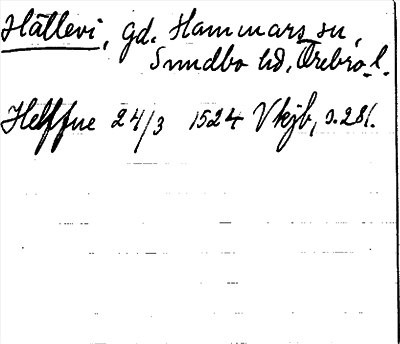 Hätlevi, gd. Hammars sn,
Sundbo hd, Örebro l.
Helffue 24/3 1524 Vkjb, s. 281.